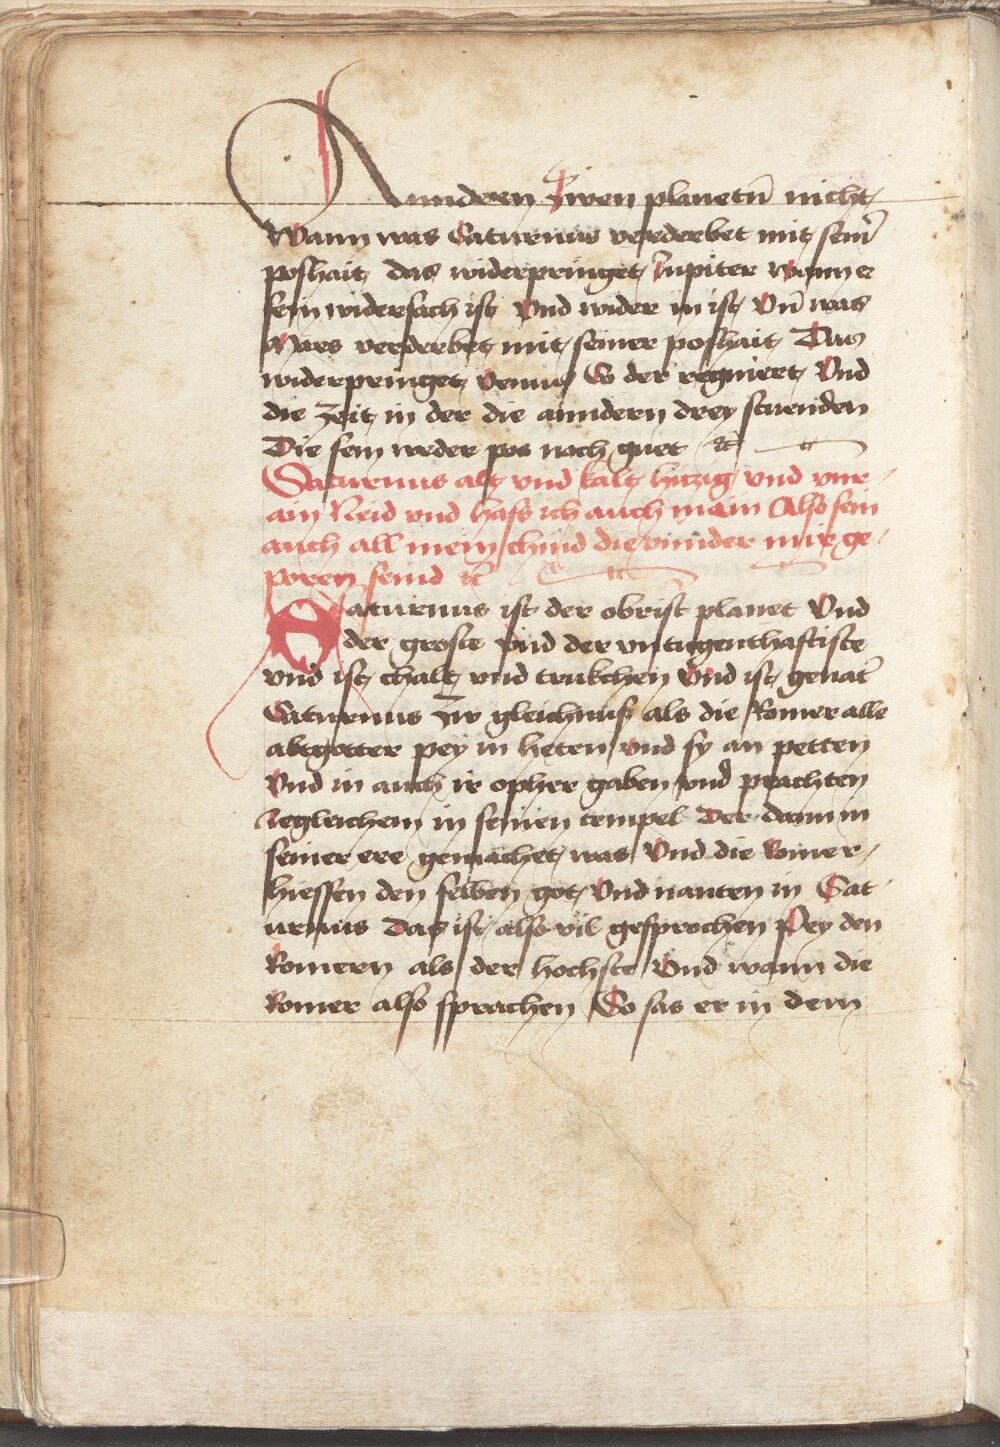 Anndern Zwen planetn̄ nicht
Wann was Saturnus verderbet mit sein̄
poshait das widerpringet Jupiter wann er
sein widersach ist Vnd wider in ist Vn̄ was
Mars verderbet mit seiner poshait Das
widerpringet Venus So der regniert Vnd
die Zeit in der die anndern drey stuenden
Die sein weder pos noch guet ꝛc
Saturnus alt vnd kalt hitzig vnd vnr
ain Neid vnd hass ich auch main Also sein
auch all mein chind die vnnder mir ge
poren seind ꝛc
Saturnus ist der obrist planet Vnd
der groste vnd der vntugenthaftiste
vnd ist chalt vnd trukchen Vnd ist genāt
Saturnus Zw gleichnuss als die Romer alle
abtgotter pey in heten vnd sy an petten
Vnd in auch ir opher gaben vnd prachten
Negleichem in seinen tempel Der dann in
seiner ere gemachet was Vnd die Romer
hiessen den selben got Vnd nanten in Sat
urnus Das ist also vil gesprochen Pey den
Romern als der hochste Vnd wann die
Romer also sprachen So sas er in dem